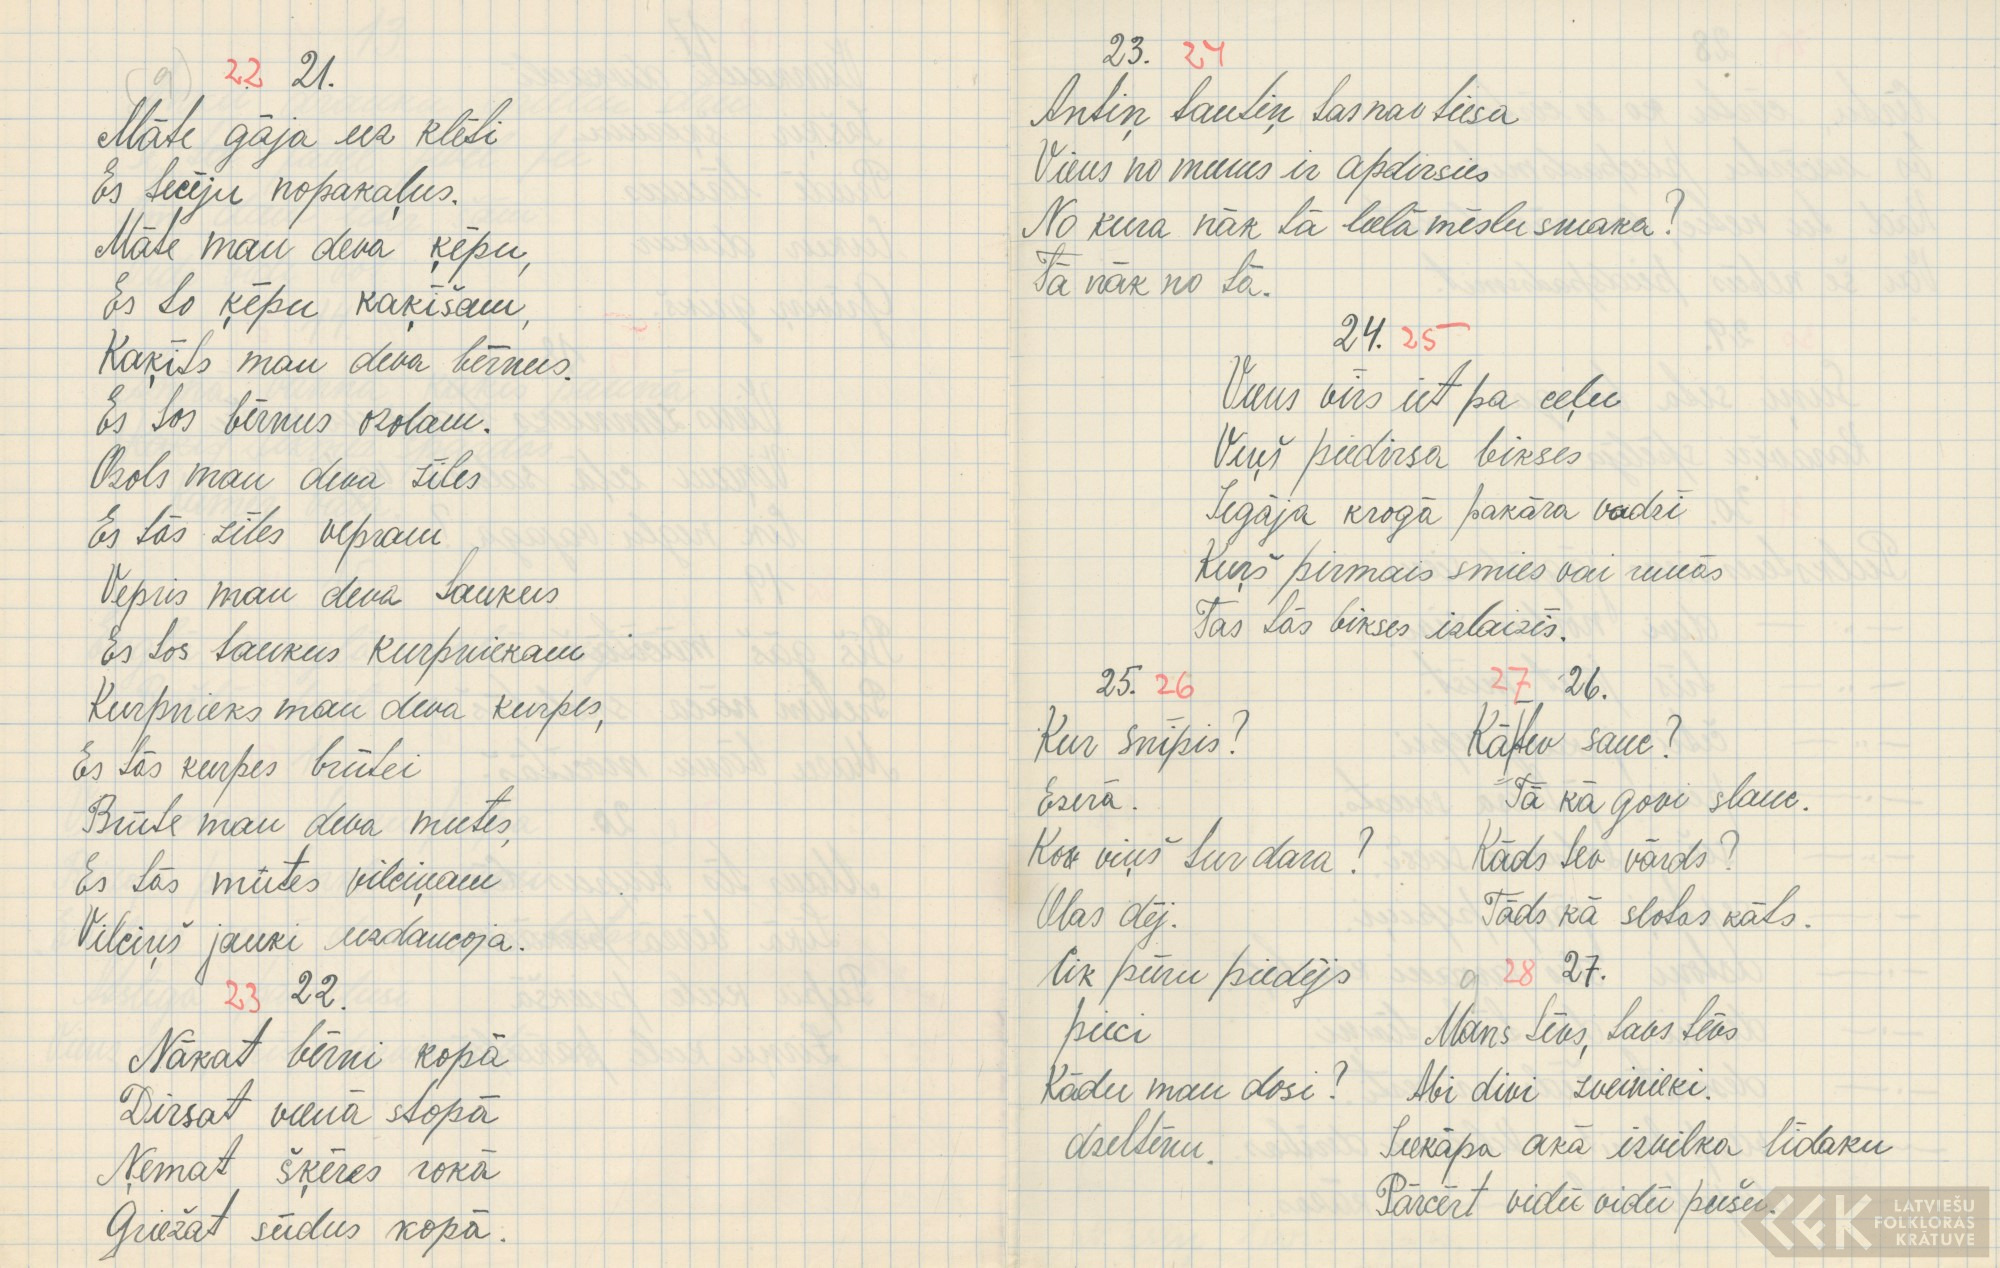 (g) 22 21.
Māte gāja uz klēti
Es tecēju nopakaļus.
Māte man deva ķēpu,
Es to ķēpu kaķīšam,
Kaķīts man deva bērnus.
Es tos bērnus ozolam.
Ozols man deva zīles
Es tās zīles vepram
Vepris man deva taukus
Es tos taukus kurpniekam
Kurpnieks man deva kurpes,
Es tās kurpes brūtei
Brūte man deva mutes,
Es tās mūtes vilciņam
Vilciņš jauki uzdancoja.
23 22.
Nākat bērni kopā
Dirsat vienā stopā
Ņemat šķēres rokā
Griežat sūdus kopā.
23. 24
Antiņ tautiņ tas nav tiesa
Viens no mums ir apdirsies
No kura nāk tā lielā mēslu smaka?
Tā nāk no tā.
24. 25
Viens vīrs iet pa ceļu
Viņš piedirsa bikses
Iegāja krogā pakāra vadzī
Kuŗš pirmais smies vai runās
Tas tās bikses izlaizīs.
25. 26
Kur snīpis?
Ezerā.
Ko viņš tur dara?
Olas dēj.
Cik pūru piedējs
pieci
Kādu man dosi?
dzeltēnu.
27 26.
Kā tev sauc?
Tā kā govi slauc.
Kāds tev vārds?
Tāds kā slotas kāts.
g 28 27.
Mans tēvs, tavs tēvs
Abi divi zveinieki.
Iekāpa akā izvilka līdaku
Pārcērt vidū vidū pušu.
LATVIEŠU
FOLKLORAS
KRĀTUVE